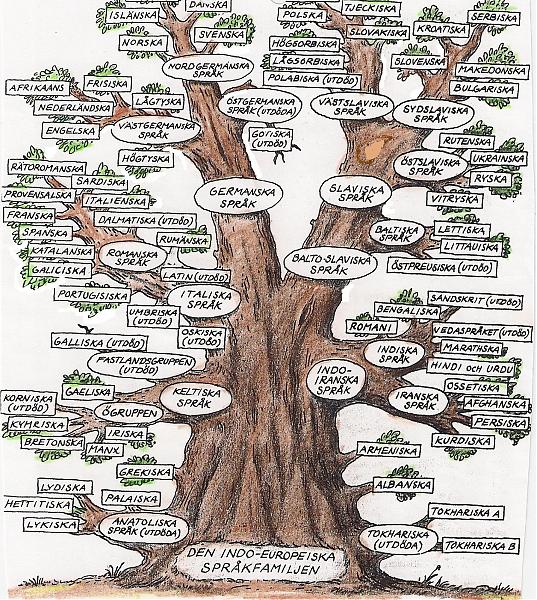 DANSKA
ISLÄNSKA
SVENSKA
NORSKA
NORDGERMANSKA
SPRÅK
POLSKA
TJECKISKA
SERBISKA
SLOVAKISKA
KROATISKA
HÖGSORBISKA
LÅGSORBISKA
SLOVENSKA
MAKEDONSKA
POLABISKA (UTDÖD)
BULGARISKA
AFRIKAANS
FRISISKA
LÅGTYSKA
NEDERLÄNDSKA
ENGELSKA
VÄSTGERMANSKA
SPRÅK
ÖSTGERMANSKA
SPRÅK (UTDÖDA)
GOTISKA
(UTDÖD)
HÖGTYSKA
VÄSTSLAVISKA
SPRÅK
SYDSLAVISKA
SPRÅK
RUTENSKA
ÖSTSLAVISKA
SPRÅK
UKRAINSKA
RYSKA
VITRYSKA
GERMANSKA
SPRÅK
SLAVISKA
SPRÅK
RÄTOROMANSKA
SARDISKA
PROVENSALSKA
ITALIENSKA
FRANSKA
DALMATISKA (UTDÖD)
SPANSKA
RUMÄNSKA
KATALANSKA
ROMANSKA
SPRÅK
GALICISKA
LATIN (UTDÖD)
PORTUGISISKA
ITALISKA
SPRÅK
UMBRISKA
(UTDÖD)
OSKISKA
(UTDÖD)
BALTISKA
SPRÅK
LETTISKA
LITTAUISKA
ÖSTPREUSISKA (UTDÖD)
BALTO-SLAVISKA
SPRÅK
GALLISKA (UTDÖD)
FASTLANDSGRUPPEN
(UTDÖD)
GAELISKA
KELTISKA
SPRÅK
KORNISKA
(UTDÖD)
ÖGRUPPEN
KYMRISKA
IRISKA
BRETONSKA
MANX
SANDSKRIT (UTDÖD)
BENGALISKA
ROMANI
VEDASPRÅKET (UTDÖD)
INDISKA
SPRÅK
MARATHSKA
HINDI OCH URDU
INDO-
IRANSKA
SPRÅK
OSSETISKA
IRANSKA
SPRÅK
AFGHANSKA
PERSISKA
KURDISKA
GREKISKA
ARMENISKA
ALBANSKA
LYDISKA
PALAISKA
HETTITISKA
LYKISKA
ANATOLISKA
SPRÅK (UTDÖDA)
TOKHARISKA A
TOKHARISKA
(UTDÖDA)
TOKHARISKA B
DEN INDO-EUROPEISKA
SPRÅKFAMILJEN